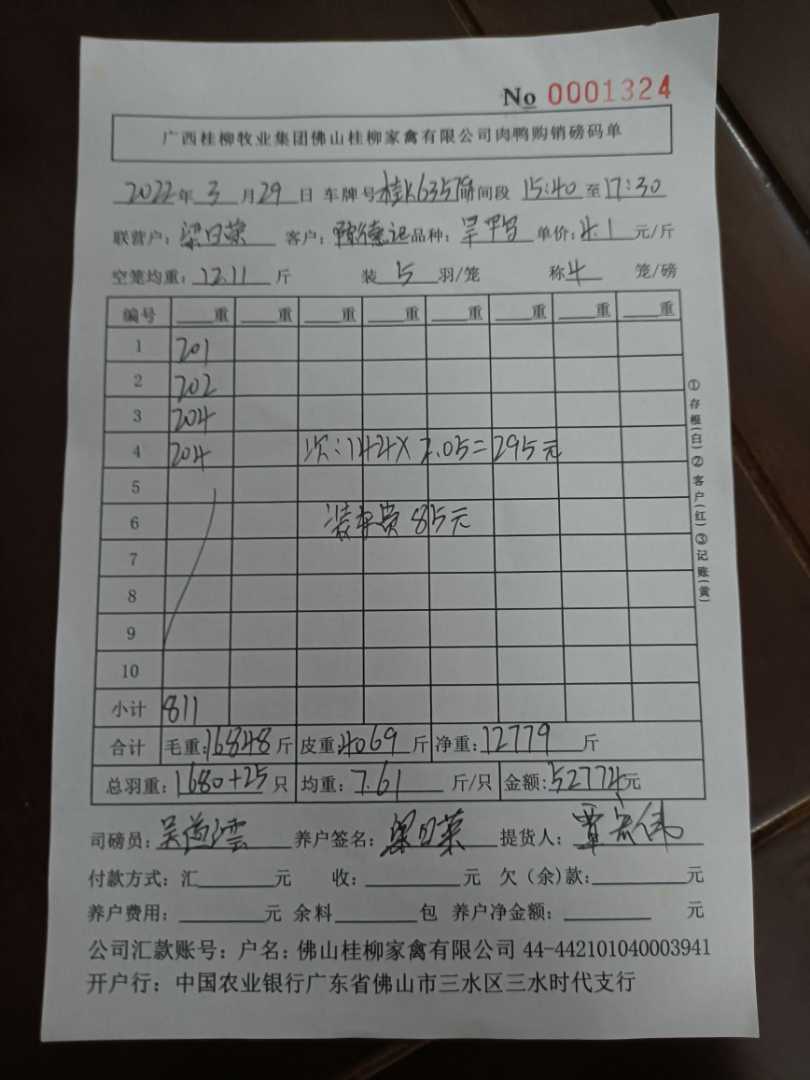 No 0001324
广西桂柳牧业集团佛山桂柳家禽有限公司肉鸭购销磅码单
2022年3月29日 车牌号 桂 时间段 15:40至17:30
联营户: 梁日荣 客户: 陈德记 品种: 单价: 4.1 元/斤
空笼均重: 12.11 斤 装 5 羽/笼 称 4 笼/磅
编号 重 重 重 重 重 重 重 重
1 201
2 202
3 204
4 204 次:144X2.05=295元
5
6 装车费 85元
7
8
9
10
小计 811
合计 毛重:16848斤 皮重:4069斤 净重:12779斤
总羽重:1680+25只 均重:7.61斤/只 金额:52774元
司磅员: 养户签名: 梁日荣 提货人:
付款方式:汇 元 收: 元 欠(余)款: 元
养户费用: 元 余料 包 养户净金额: 元
公司汇款账号:户名:佛山桂柳家禽有限公司 44-442101040003941
开户行:中国农业银行广东省佛山市三水区三水时代支行
①存根(白)②客户(红)③记账(黄)